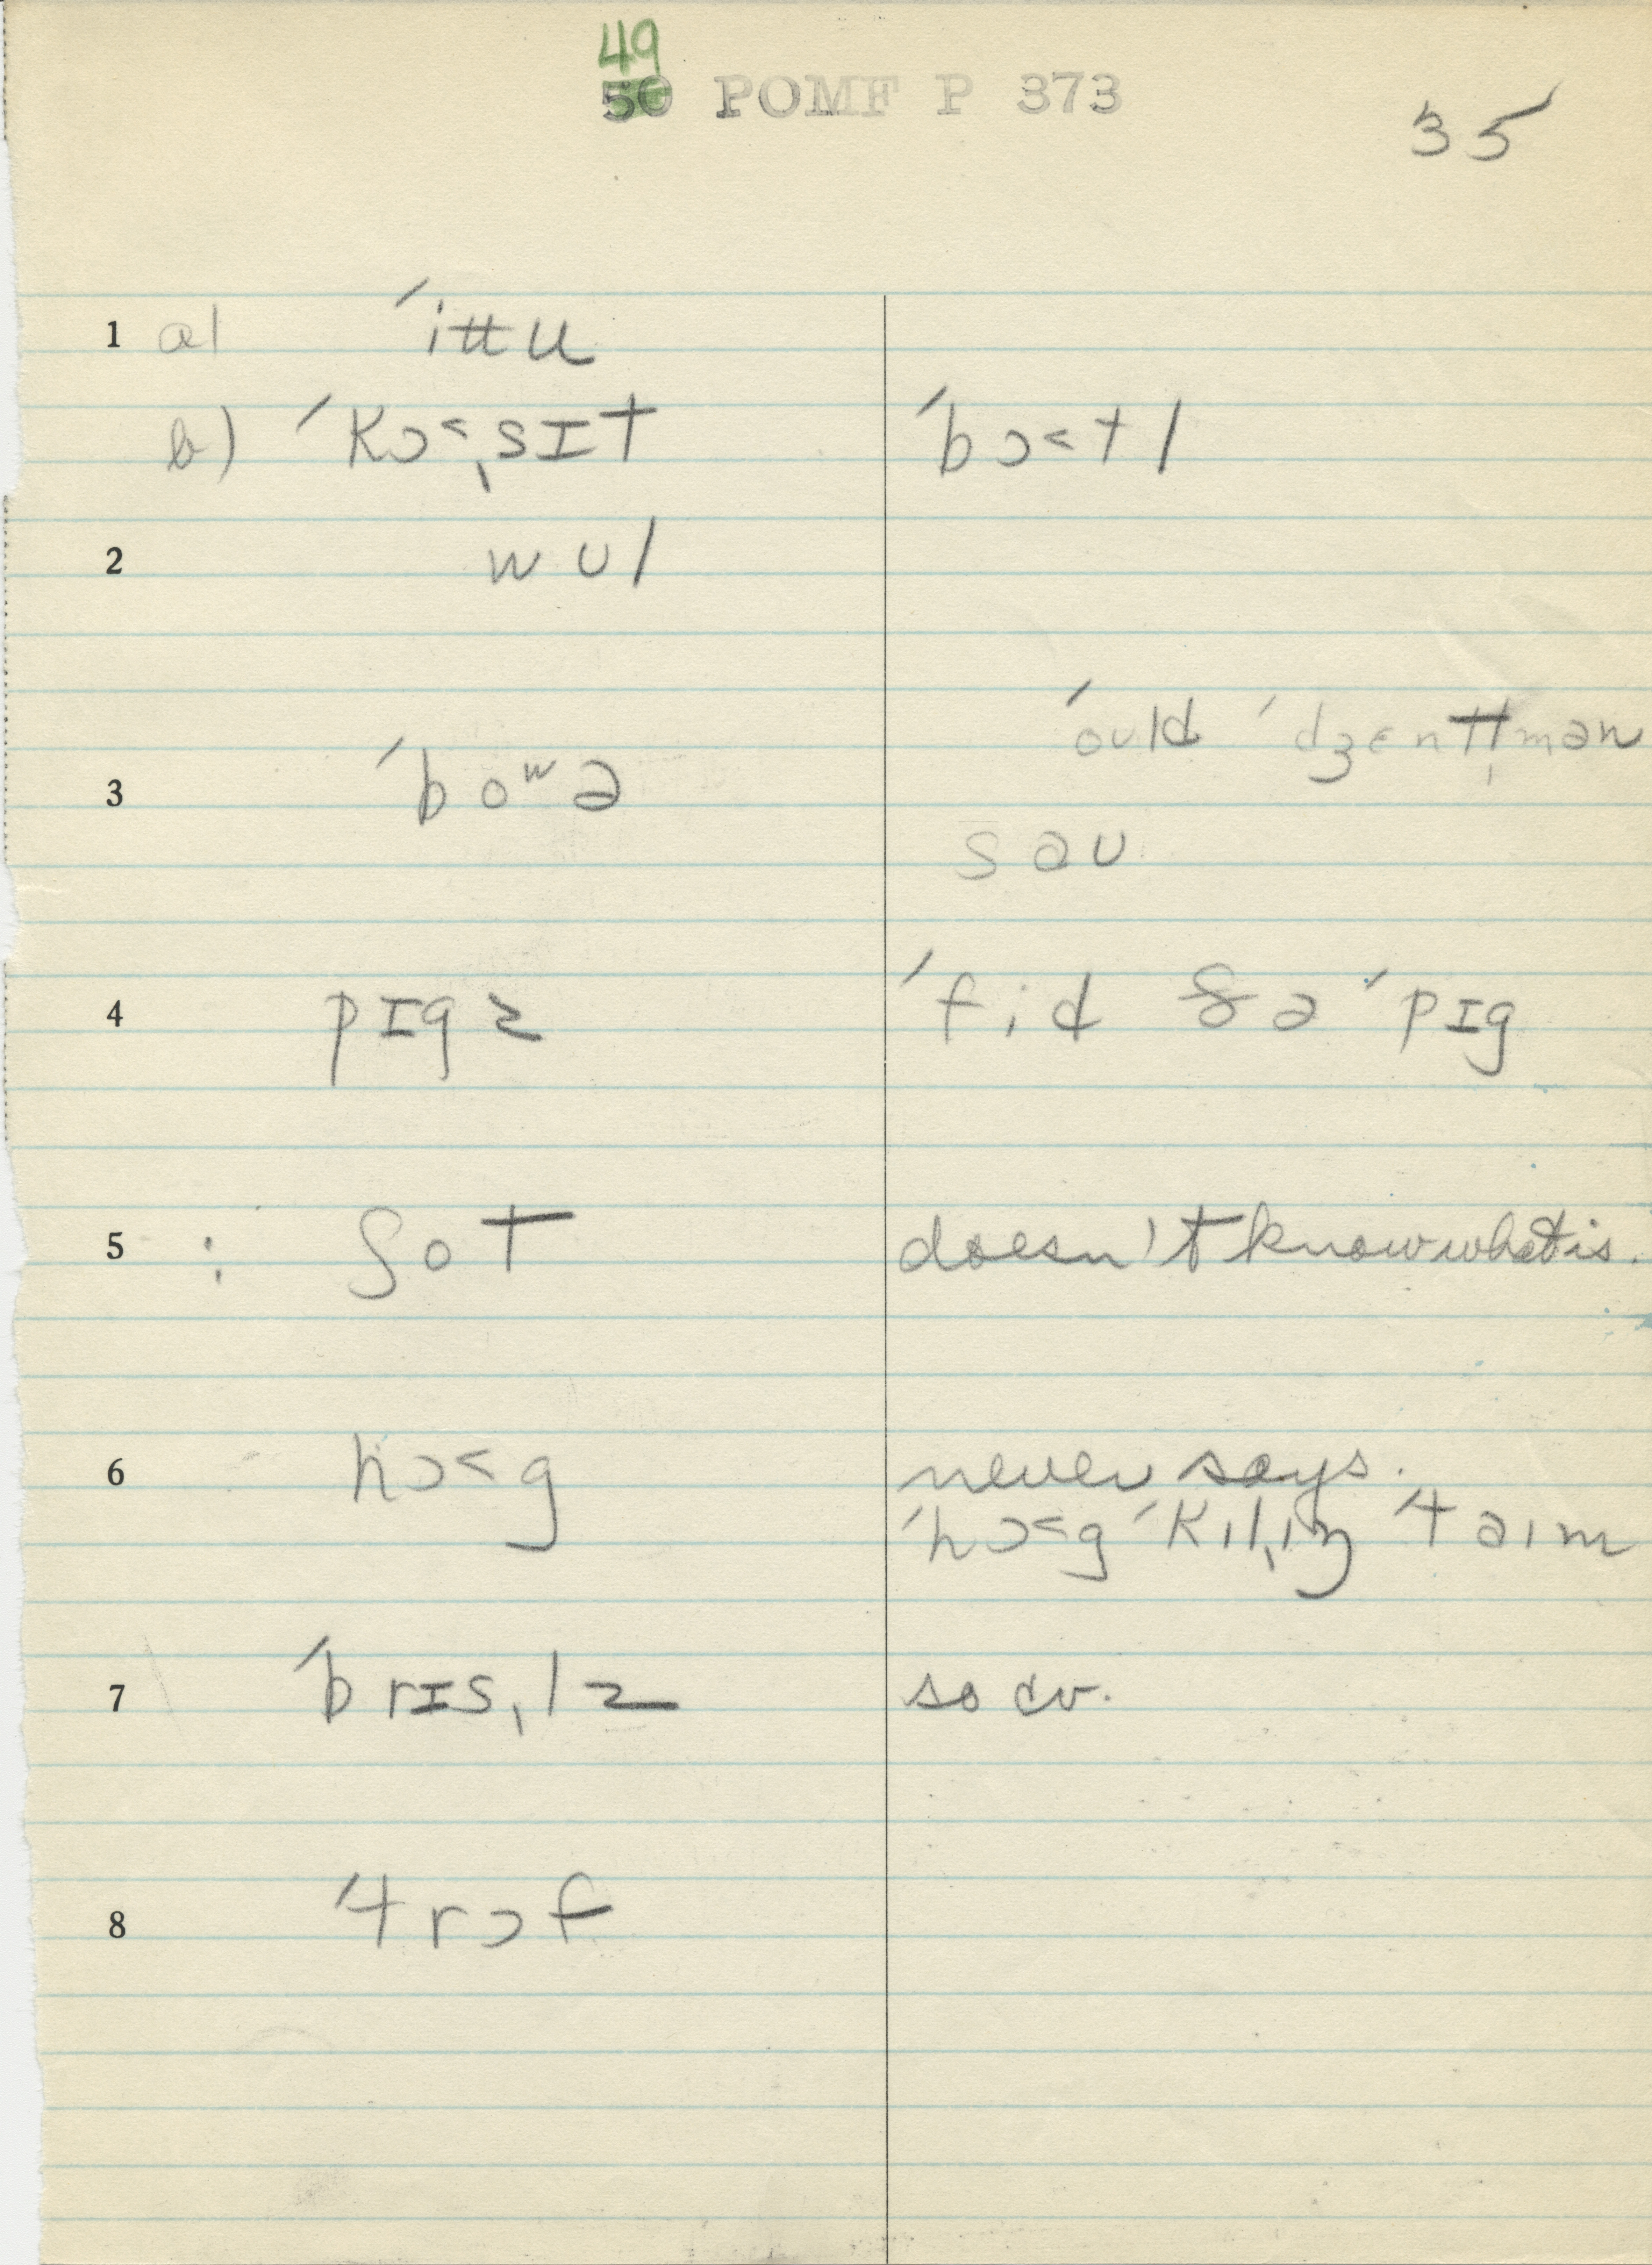 49
50 POMF P 373
35
1 a) ˈittu
b) ˈkɔ˂ˌsɪt ˈbɔ˂tl
2 wul
ˈould ˈdʒentl̩mən
3 ˈboʷə
sau
4 pɪgz ˈfid ðə ˈpɪg
5 : ʃot doesn't know what is.
6 hɔ˂g never says.
ˈhɔ˂g ˈkilˌiŋ ˈtaim
7 ˈbrɪsˌlz so cv.
8 ˈtrɔf